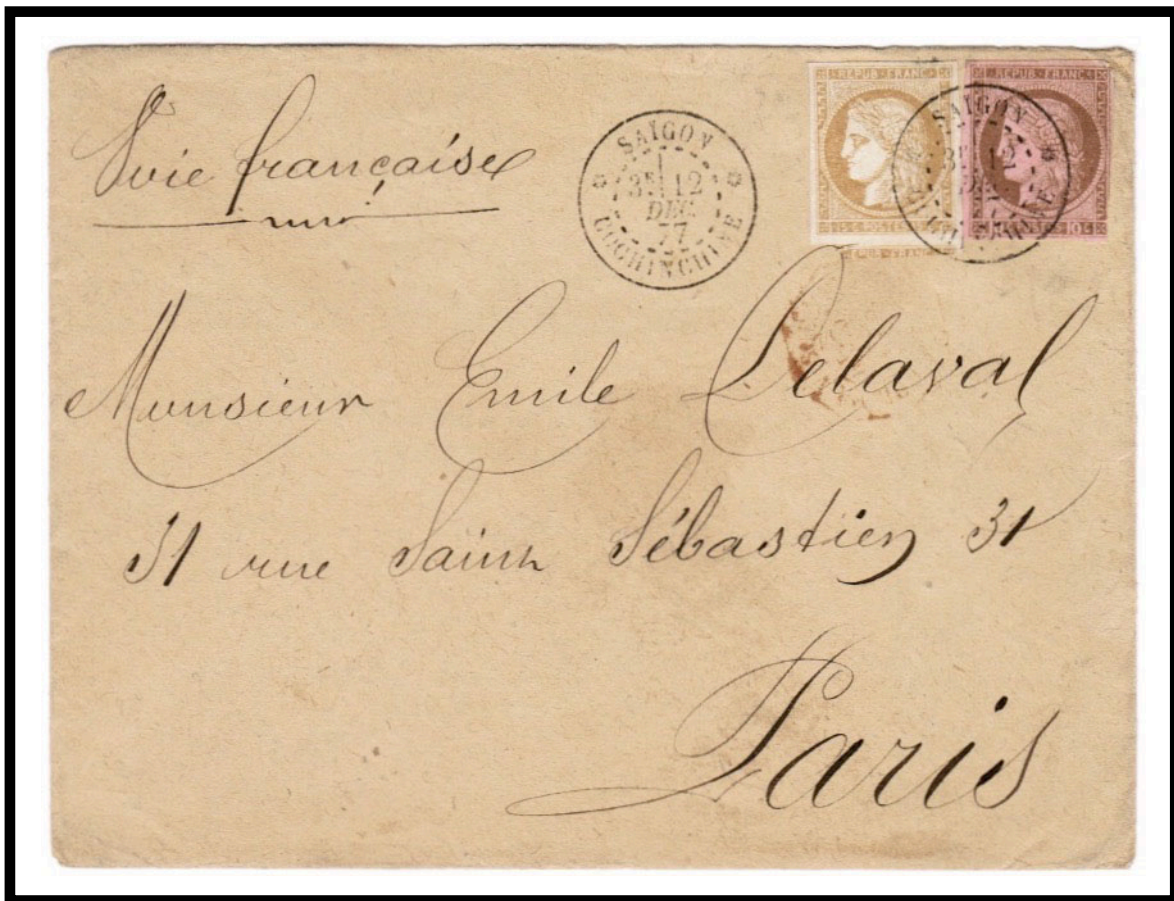 Voie française
SAIGON
3E 12
DEC.
77
COCHINCHINE
REPUB · FRANC
15 C · POSTES · 15 C
REPUB · FRANC
REPUB · FRANC
10 C
SAIGON
3E 12
DEC
Monsieur Emile Delaval
31 rue Saint Sébastien 31
Paris